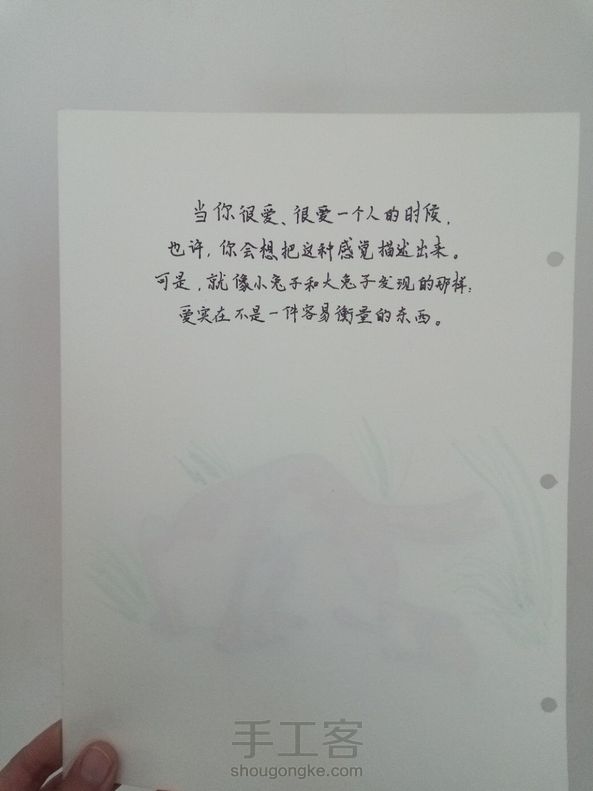 当你很爱、很爱一个人的时候，
也许，你会想把这种感觉描述出来。
可是，就像小兔子和大兔子发现的那样：
爱实在不是一件容易衡量的东西。
手工客
shougongke.com